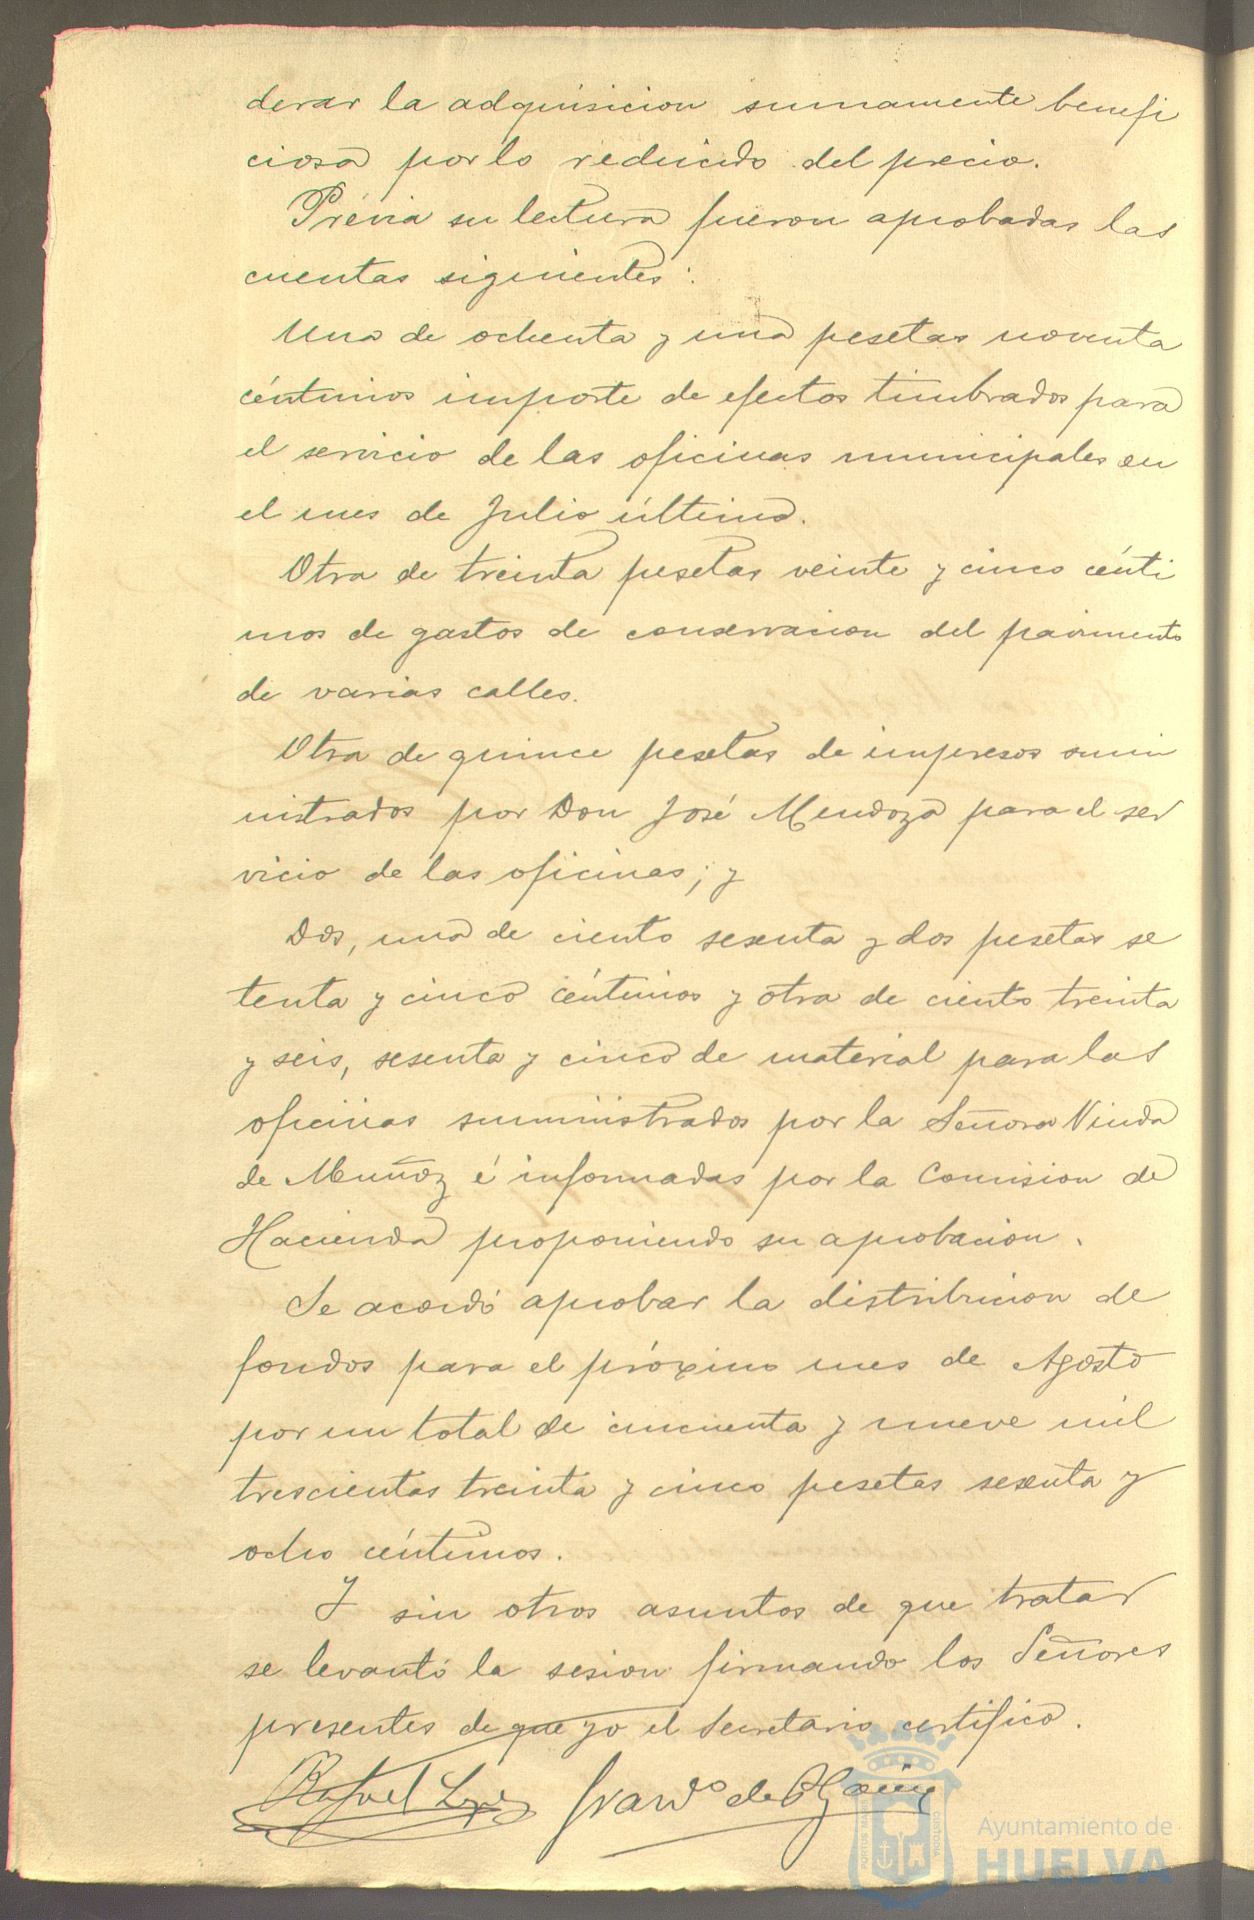 derar la adquisicion sumamente benefi
ciosa por lo reducido del precio.
Prévia su lectura fueron aprobadas las
cuentas siguientes:
Una de ochenta y una pesetas noventa
céntimos importe de efectos timbrados para
el servicio de las oficinas municipales en
el mes de Julio último.
Otra de treinta pesetas veinte y cinco cénti
mos de gastos de conservacion del pavimento
de varias calles.
Otra de quince pesetas de impresos sumi
nistrados por Don José Mendoza para el ser
vicio de las oficinas; y
Dos, una de ciento sesenta y dos pesetas se
tenta y cinco céntimos y otra de ciento treinta
y seis, sesenta y cinco de material para las
oficinas suministrados por la Señora Viuda
de Muñoz é informadas por la Comision de
Hacienda proponiendo su aprobacion.
Se acordó aprobar la distribucion de
fondos para el próximo mes de Agosto
por un total de cincuenta y nueve mil
trescientas treinta y cinco pesetas sesenta y
ocho céntimos.
Y sin otros asuntos de que tratar
se levantó la sesion firmando los Señores
presentes de que yo el Secretario certifico.
Rafael Lopez de
Ayuntamiento de
HUELVA